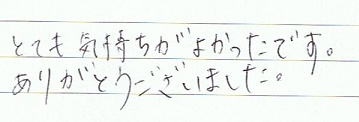 とても気持ちがよかったです。
ありがとうございました。